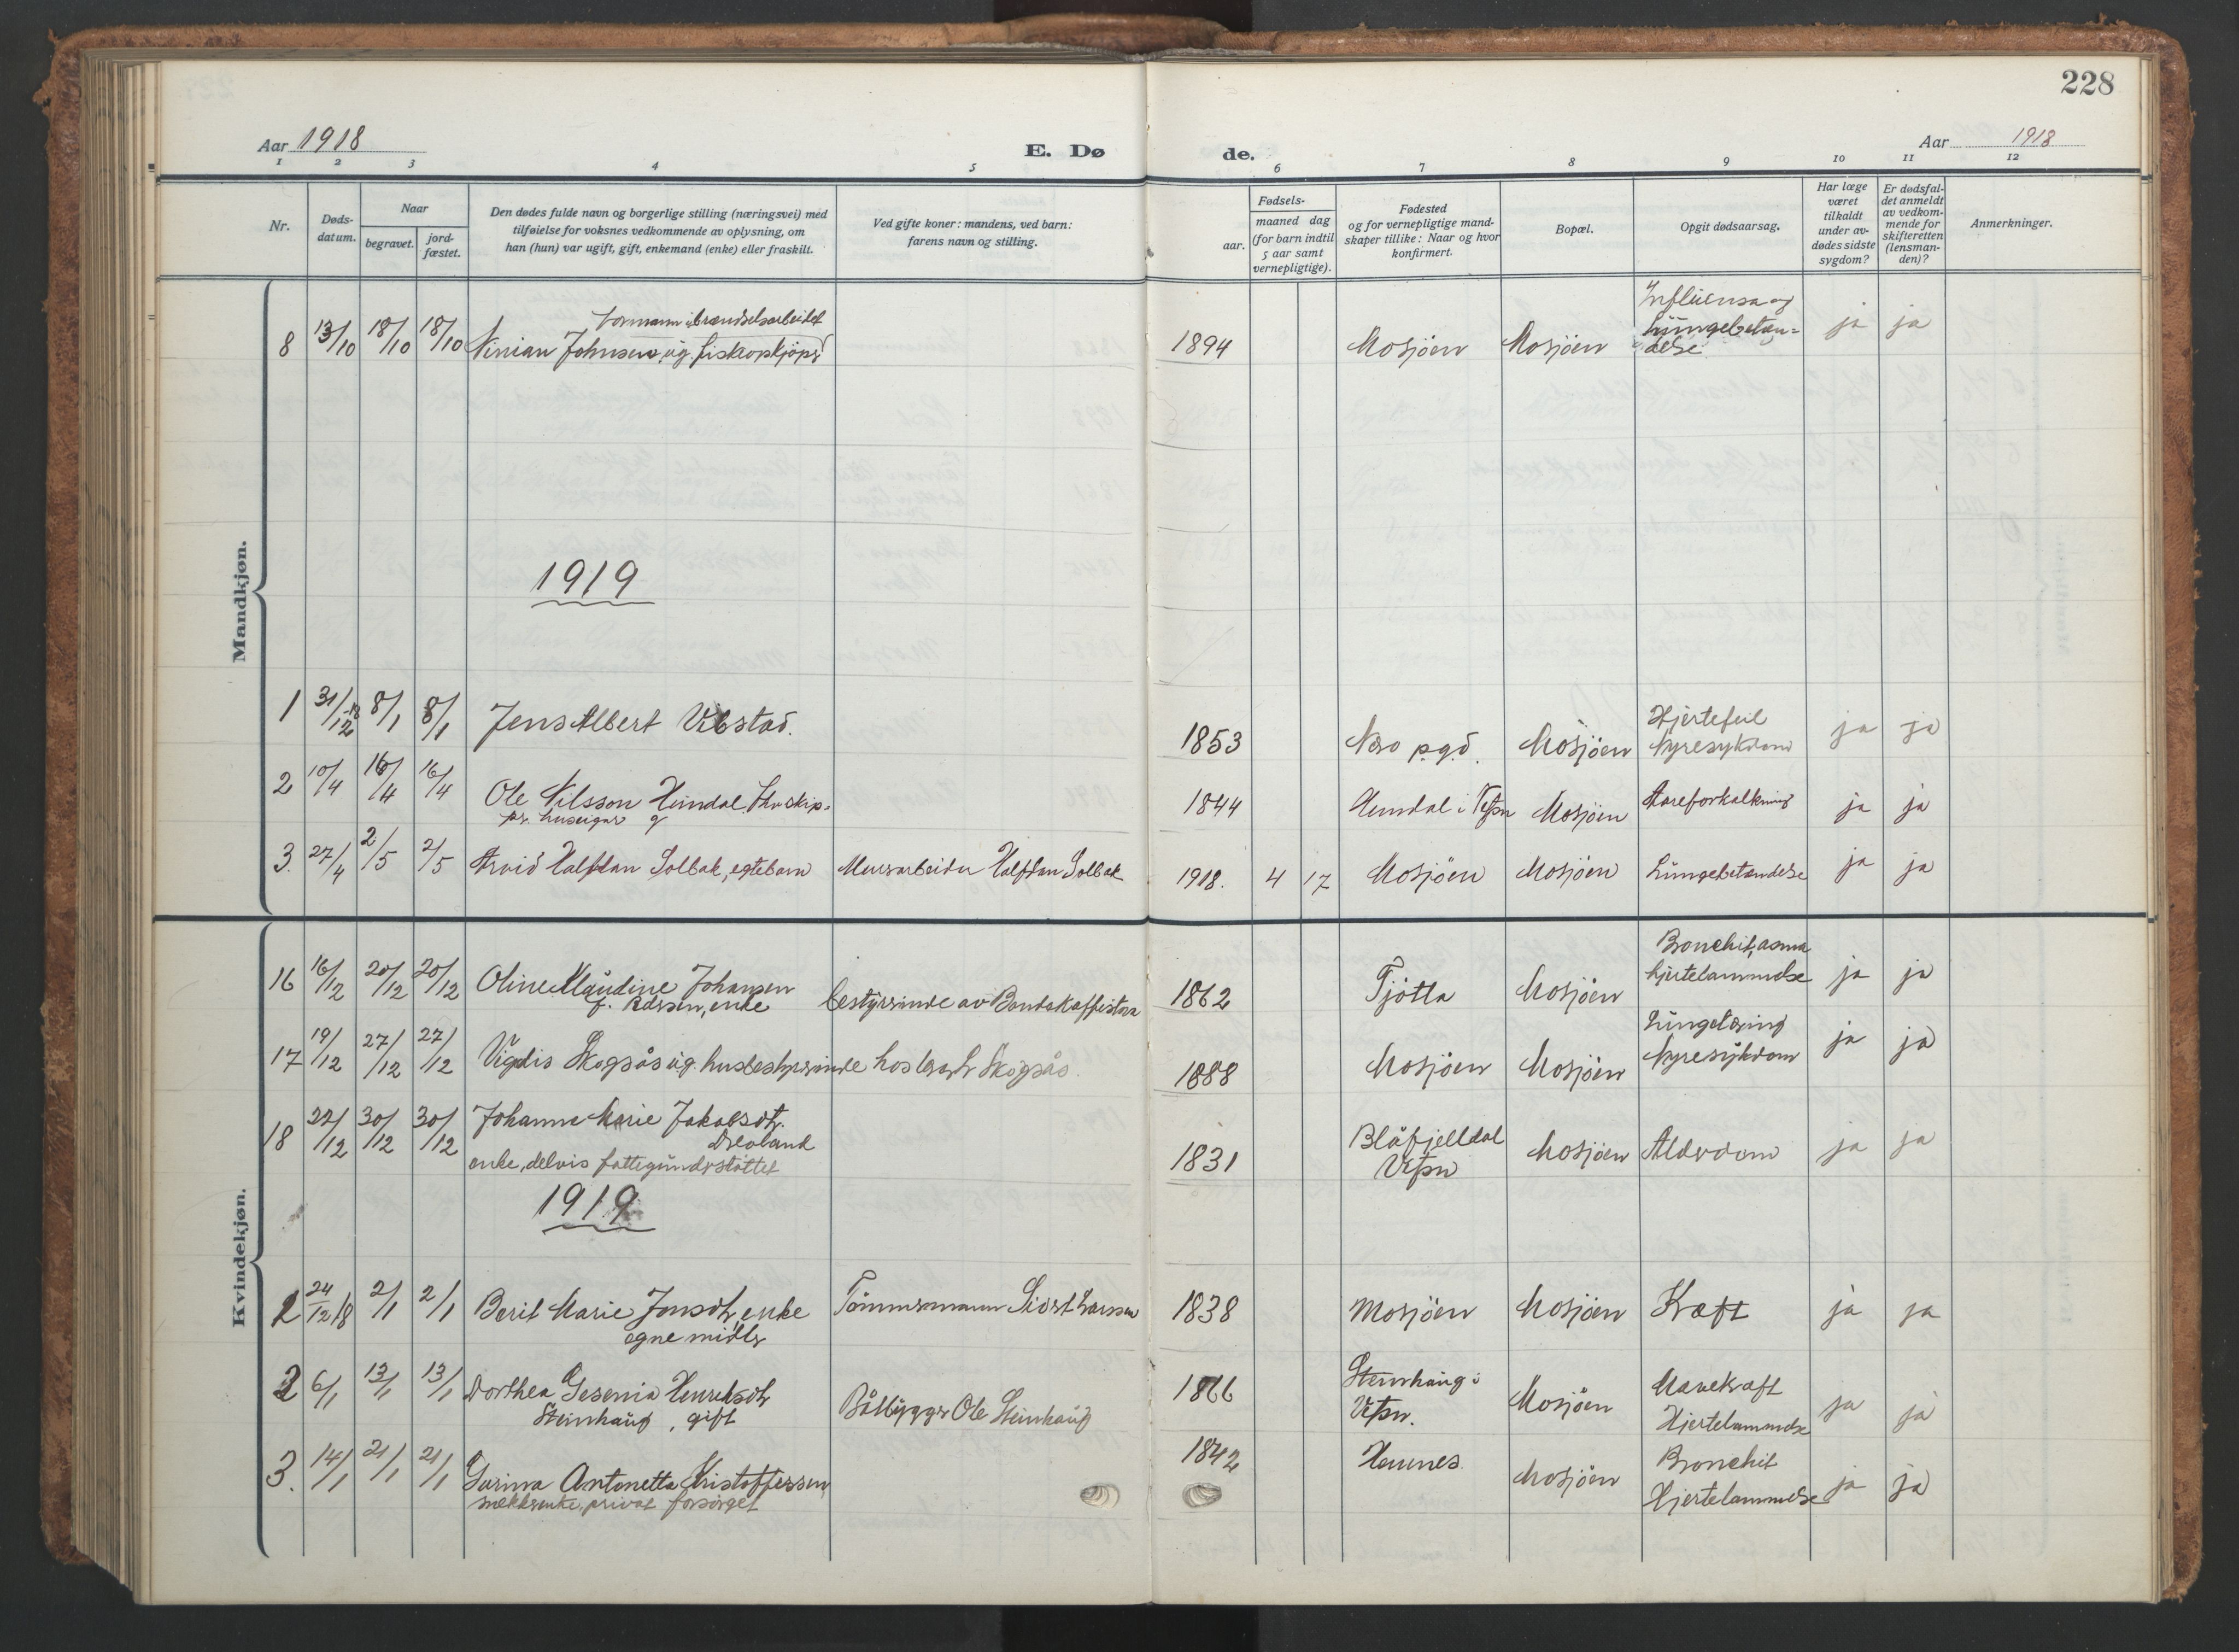 228
Aar 1918
E. Dø
de.
Aar 1918
1 2 3 4 5 6 7 8 9 10 11 12
Nr.
Døds-
datum.
Naar
begravet.
jord-
fæstet.
Den dødes fulde navn og borgerlige stilling (næringsvei) med
tilføielse for voksnes vedkommende av oplysning, om
han (hun) var ugift, gift, enkemand (enke) eller fraskilt.
Ved gifte koner: mandens, ved barn:
farens navn og stilling.
Fødsels-
aar.
maaned dag
(for barn indtil
5 aar samt
vernepligtige).
Fødested
og for vernepligtige mand-
skaper tillike: Naar og hvor
konfirmert.
Bopæl.
Opgit dødsaarsag.
Har læge
været
tilkaldt
under av-
dødes sidste
sygdom?
Er dødsfal-
det anmeldt
av vedkom-
mende for
skifteretten
(lensman-
den)?
Anmerkninger.
Mandkjøn.
formann i brændselsarbeidet
8 13/10 18/10 18/10 Ninian Johnsen, ug. fiskeopkjøper 1894 Mosjöen Mosjöen Influensa og
Lungebetæn=
delse ja ja
1919
1 31/12 18 8/1 8/1 Jens Albert Vebstad. 1853 Nero pgd. Mosjöen Hjertefeil
Nyresykdom ja ja
2 10/4 16/4 16/4 Ole Nilsson Hundal
pr. huseigar g 1844 Hundal i Vefsn Mosjöen Aareforkalkning ja ja
3. 27/4 2/5 2/5 Arvid Halfdan Solbak, egtebarn Mursarbeider Halfdan Solbak 1918. 4 17 Mosjöen Mosjöen Lungebetændelse ja ja
Kvindekjøn.
16 16/12 20/12 20/12 Oline Klaudine Johansen
f. Pedersen, enke bestyrerinde av Bondekaffistova 1862 Tjötta Mosjöen Bronchit, asma
hjertelammelse ja ja
17 19/12 27/12 27/12 Vigdis Skogsås ug. husbestyrerinde hos Skogsås. 1888 Mosjöen Mosjöen Lungetæring
Nyresykdom ja ja
18 22/12 30/12 30/12 Johanna Marie Jakobsdtr.
Drevland
enke, delvis fattigunderstöttet 1831 Blåfjelldal
Vefsn Mosjöen Alderdom ja ja
1919
1 24/12 18 2/1 2/1 Berit Marie Jonsdtr, enke
egne midler Tömmermann Siort Larssen 1838 Mosjöen Mosjöen Kræft ja ja
2 6/1 13/1 13/1 Dorthea Jesenia Henriksdtr
Steinhaug, gift Båtbygger Ole Steinhaug 1866 Steinhaug i
Vefsn. Mosjöen Mavekræft
Hjertelammelse ja ja
3. 14/1 21/1 21/1 Gurina Antonetta Kristoffersen
snekkerenke, privat forsörget 1842 Hemnes Mosjöen Bronchit
Hjertelammelse ja ja